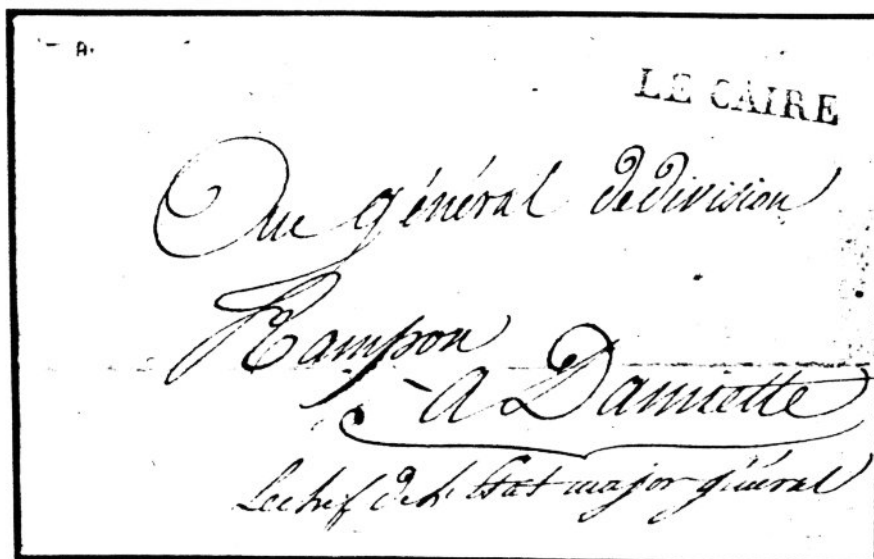 A.
LE CAIRE
Au général de division
Rampon
A Damiette
Le chef de l'Etat major général